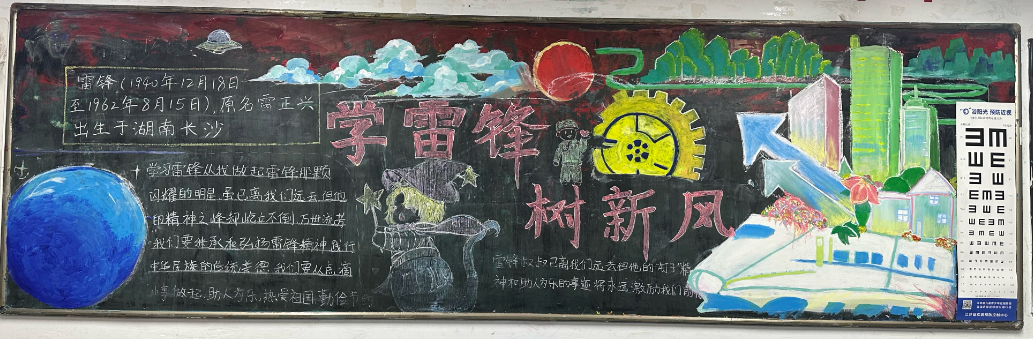 雷锋(1940年12月18日
至1962年8月15日),原名雷正兴
出生于湖南长沙
学雷锋
树新风
学习雷锋从我做起雷锋那颗
闪耀的明星虽已离我们远去但他
的精神之峰却屹立不倒,万世流芳
我们要继承和弘扬雷锋精神践行
中华民族的传统美德,我们要从点滴
小事做起,助人为乐,热爱祖国勤俭节
雷锋叔叔已离我们远去但他的
神和助人为乐的事迹将永远激励我们前
沿阳光 预防近视